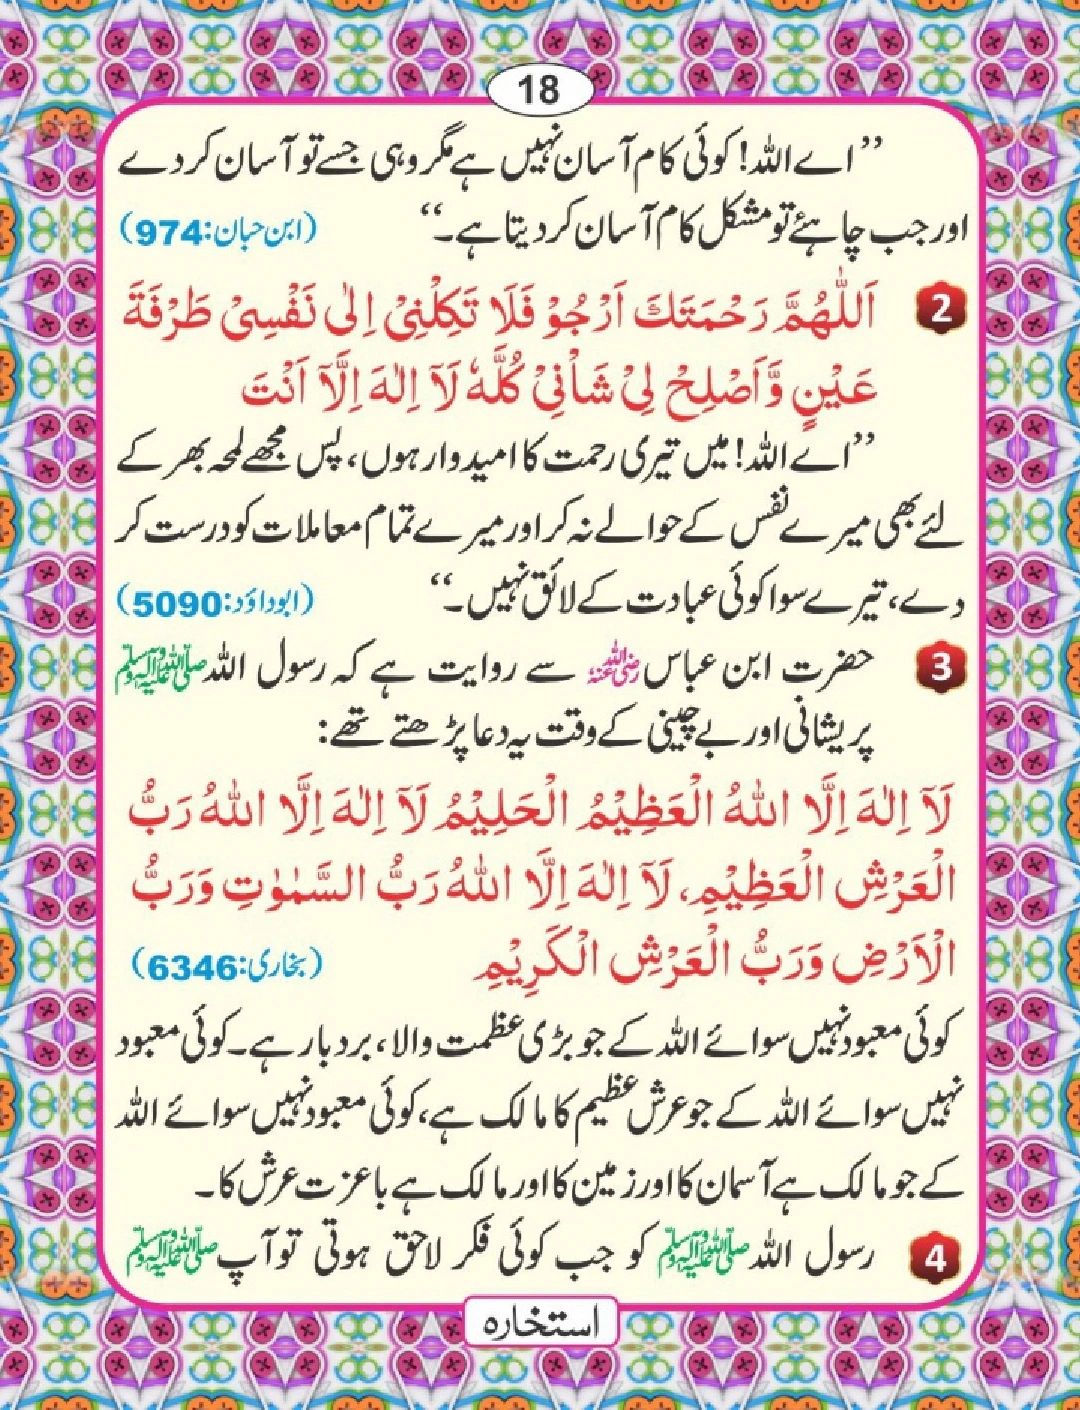 18
’’اے اللہ! کوئی کام آسان نہیں ہے مگر وہی جسے تو آسان کر دے
اور جب چاہئے تو مشکل کام آسان کر دیتا ہے۔‘‘ (ابن حبان:974)
2 اَللّٰهُمَّ رَحْمَتَكَ اَرْجُوْ فَلَا تَكِلْنِيْ اِلٰى نَفْسِيْ طَرْفَةَ
عَيْنٍ وَّاَصْلِحْ لِيْ شَاْنِيْ كُلَّهٗ لَآ اِلٰهَ اِلَّآ اَنْتَ
’’اے اللہ! میں تیری رحمت کا امیدوار ہوں، پس مجھے لمحہ بھر کے
لئے بھی میرے نفس کے حوالے نہ کر اور میرے تمام معاملات کو درست کر
دے، تیرے سوا کوئی عبادت کے لائق نہیں۔‘‘ (ابوداؤد:5090)
3 حضرت ابن عباس رضی اللہ عنہ سے روایت ہے کہ رسول اللہ ﷺ
پریشانی اور بے چینی کے وقت یہ دعا پڑھتے تھے:
لَآ اِلٰهَ اِلَّا اللّٰهُ الْعَظِيْمُ الْحَلِيْمُ لَآ اِلٰهَ اِلَّا اللّٰهُ رَبُّ
الْعَرْشِ الْعَظِيْمِ، لَآ اِلٰهَ اِلَّا اللّٰهُ رَبُّ السَّمٰوٰتِ وَرَبُّ
الْاَرْضِ وَرَبُّ الْعَرْشِ الْكَرِيْمِ (بخاری:6346)
کوئی معبود نہیں سوائے اللہ کے جو بڑی عظمت والا، بردبار ہے۔ کوئی معبود
نہیں سوائے اللہ کے جو عرش عظیم کا مالک ہے، کوئی معبود نہیں سوائے اللہ
کے جو مالک ہے آسمان کا اور زمین کا اور مالک ہے باعزت عرش کا۔
4 رسول اللہ ﷺ کو جب کوئی فکر لاحق ہوتی تو آپ ﷺ
استخارہ